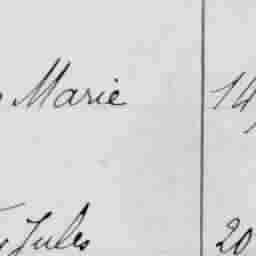 Marie 14
Jules 20